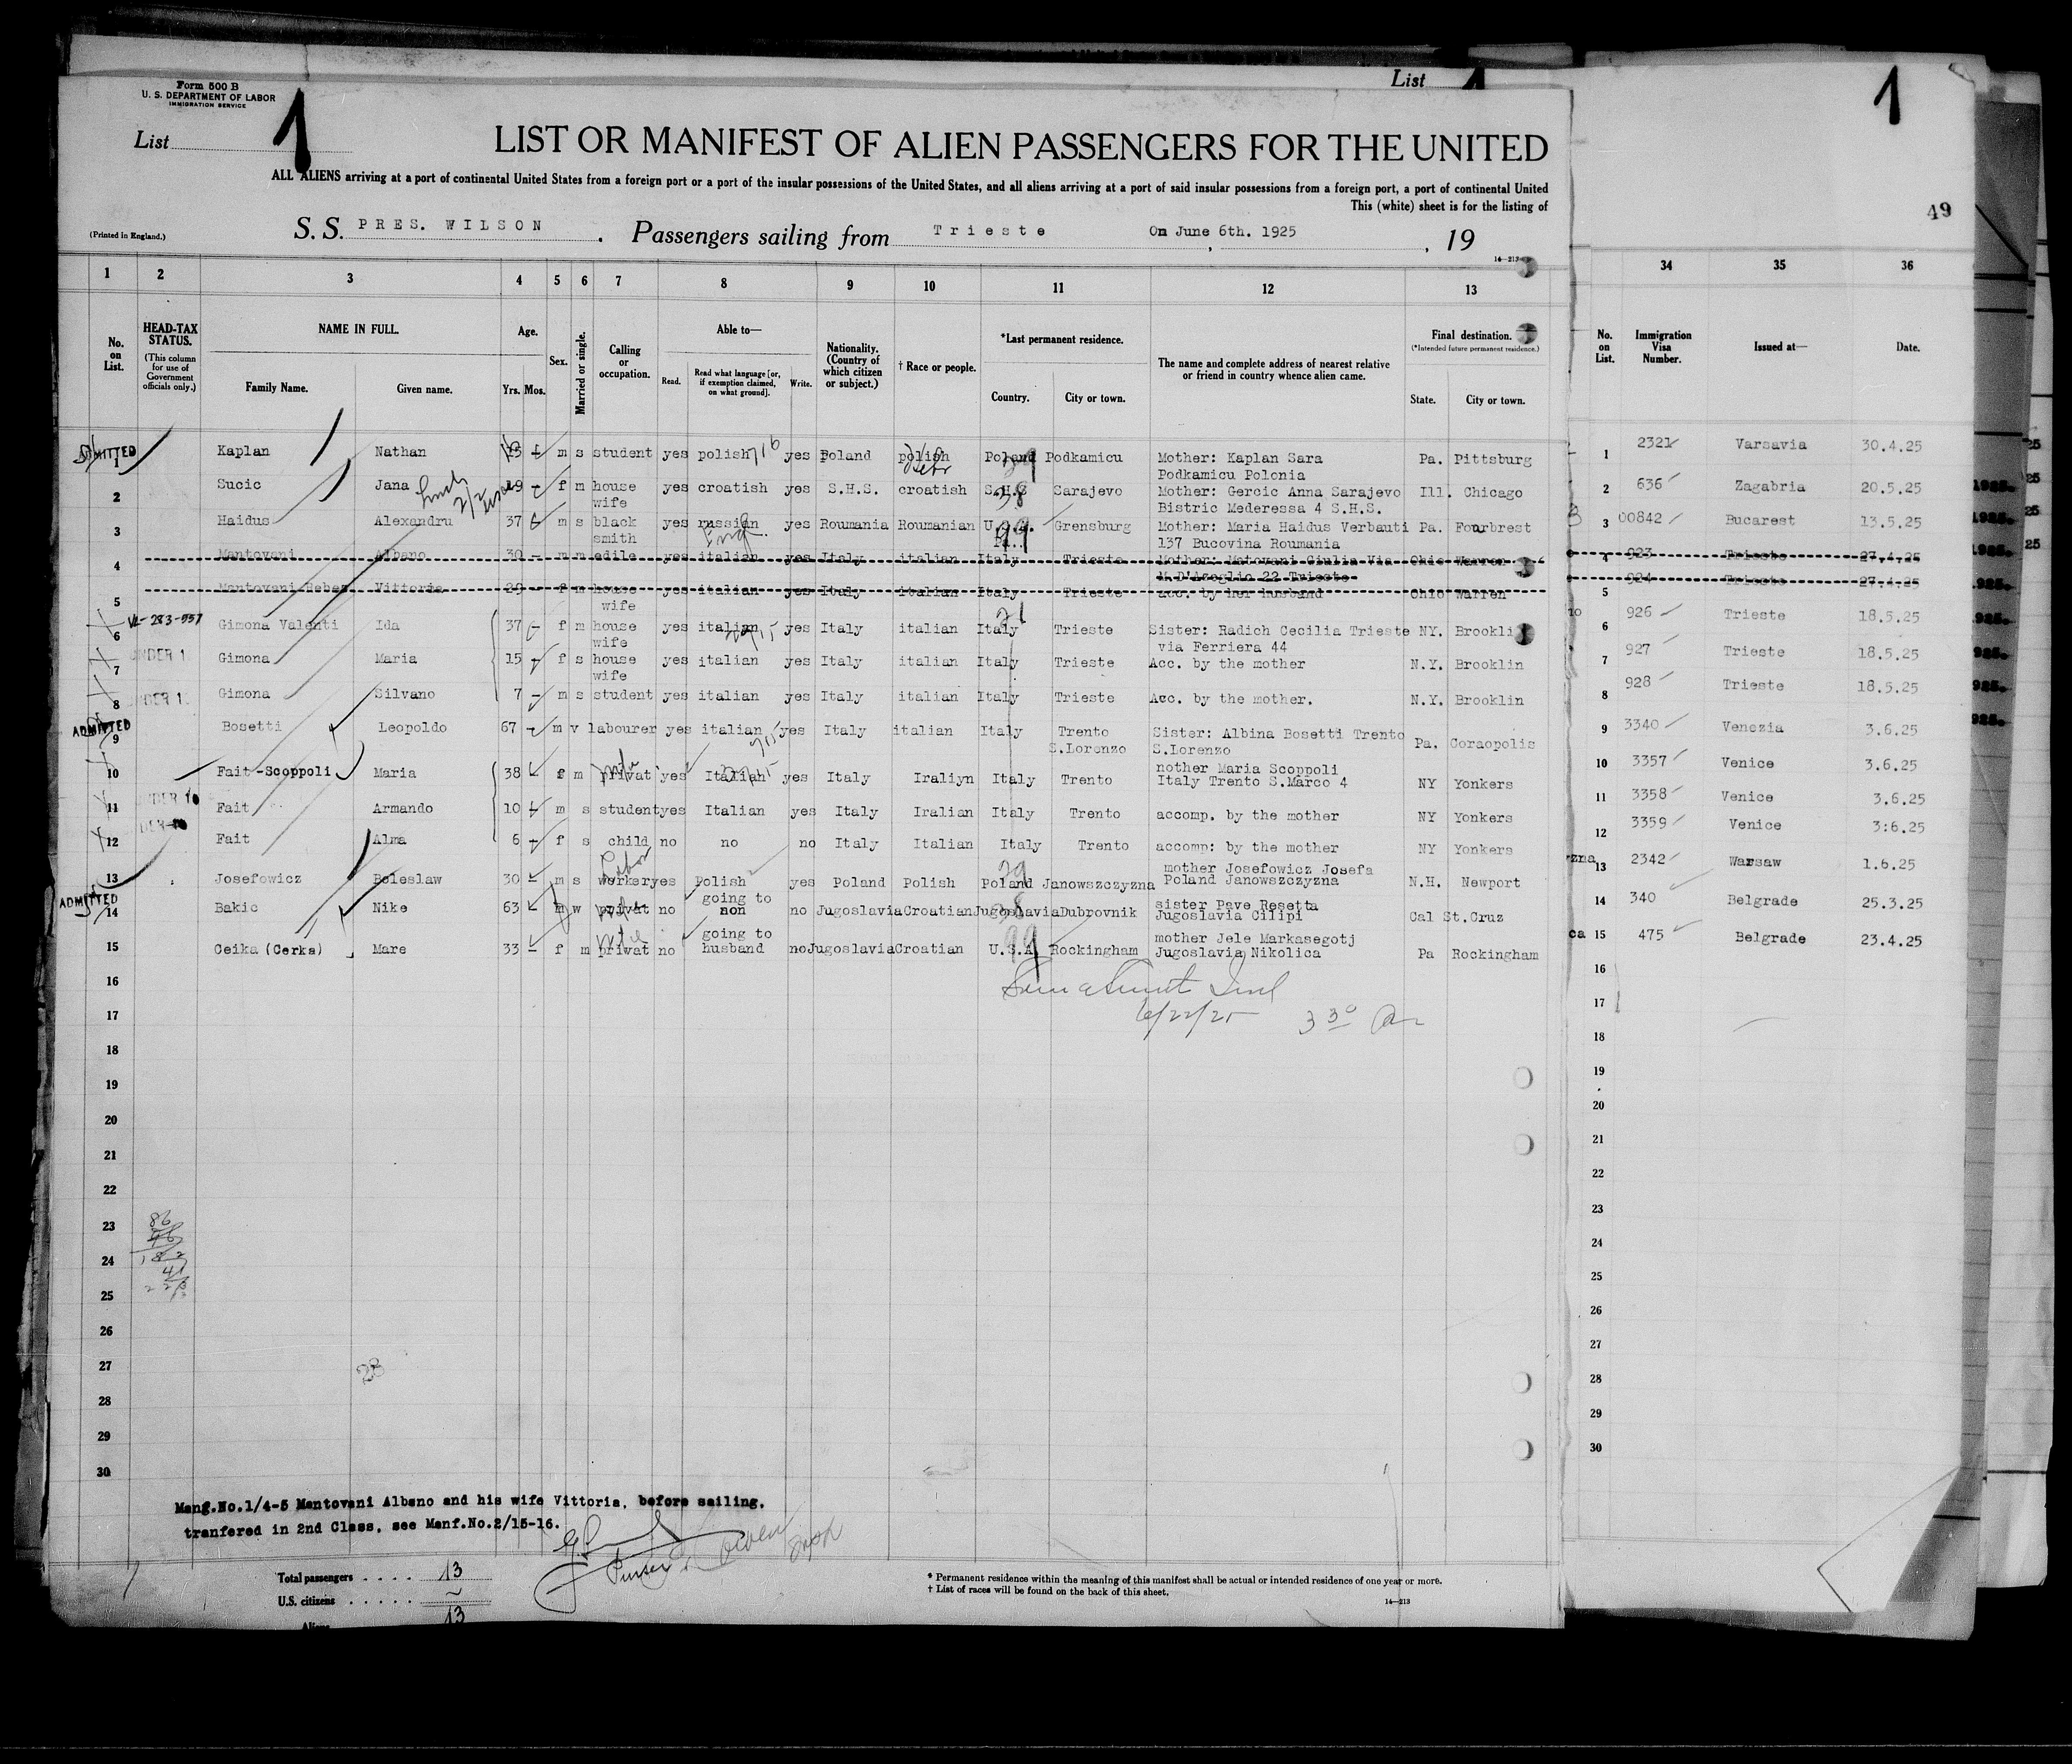 Form 500 B
U. S. DEPARTMENT OF LABOR
IMMIGRATION SERVICE
List 1
List
1
49
LIST OR MANIFEST OF ALIEN PASSENGERS FOR THE UNITED
ALL ALIENS arriving at a port of continental United States from a foreign port or a port of the insular possessions of the United States, and all aliens arriving at a port of said insular possessions from a foreign port, a port of continental United
This (white) sheet is for the listing of
(Printed in England.)
S. S. PRES. WILSON . Passengers sailing from Trieste On June 6th. 1925 , 19
14—213
1 2 3 4 5 6 7 8 9 10 11 12 13 34 35 36
No. on List.
HEAD-TAX STATUS.
(This column for use of Government officials only.)
NAME IN FULL.
Family Name. Given name.
Age.
Yrs. Mos.
Sex.
Married or single.
Calling or occupation.
Able to—
Read. Read what language [or, if exemption claimed, on what ground]. Write.
Nationality. (Country of which citizen or subject.)
† Race or people.
*Last permanent residence.
Country. City or town.
The name and complete address of nearest relative or friend in country whence alien came.
Final destination.
(*Intended future permanent residence.)
State. City or town.
No. on List.
Immigration Visa Number.
Issued at—
Date.
ADMITTED 1 Kaplan Nathan m s student yes polish 716 yes Poland polish Hebr Poland Podkamicu Mother: Kaplan Sara Pa. Pittsburg 1 2321 Varsavia 30.4.25
Podkamicu Polonia
2 Sucic Jana 29 f m house yes croatish yes S.H.S. croatish S.H.S Sarajevo Mother: Gercic Anna Sarajevo Ill. Chicago 2 636 Zagabria 20.5.25
wife Bistric Mederessa 4 S.H.S.
3 Haidus Alexandru 37 m s black yes russian yes Roumania Roumanian Grensburg Mother: Maria Haidus Verbauti Pa. Fourbrest 3 00842 Bucarest 13.5.25
smith Engl. 137 Bucovina Roumania
4 Mantovani Albano 30 m m edile yes italian yes Italy italian Italy Trieste Mother: Matovani Giulia Via Ohio Warren 4 923 Trieste 27.4.25
M.D'Azeglio 22 Trieste
5 Mantovani Reber Vittoria 29 f m house yes italian yes Italy italian Italy Trieste acc. by her husband Ohio Warren 5 924 Trieste 27.4.25
wife
6 Gimona Valenti Ida 37 f m house yes italian yes Italy italian Italy Trieste Sister: Radich Cecilia Trieste NY. Brookli 6 926 Trieste 18.5.25
wife via Ferriera 44
UNDER 1 7 Gimona Maria 15 f s house yes italian yes Italy italian Italy Trieste Acc. by the mother N.Y. Brooklin 7 927 Trieste 18.5.25
wife
UNDER 1 8 Gimona Silvano 7 m s student yes italian yes Italy italian Italy Trieste Acc. by the mother. N.Y. Brooklin 8 928 Trieste 18.5.25
ADMITTED 9 Bosetti Leopoldo 67 m v labourer yes italian yes Italy italian Italy Trento Sister: Albina Bosetti Trento Pa. Coraopolis 9 3340 Venezia 3.6.25
S.Lorenzo S.Lorenzo
10 Fait-Scoppoli Maria 38 f m privat yes Italian yes Italy Iraliyn Italy Trento nother Maria Scoppoli NY Yonkers 10 3357 Venice 3.6.25
Italy Trento S.Marco 4
11 Fait Armando 10 m s student yes Italian yes Italy Iralian Italy Trento accomp. by the mother NY Yonkers 11 3358 Venice 3.6.25
12 Fait Alma 6 f s child no no no Italy Italian Italy Trento accomp: by the mother NY Yonkers 12 3359 Venice 3:6.25
13 Josefowicz Boleslaw 30 m s worker yes Polish yes Poland Polish Poland Janowszczyzna mother Josefowicz Josefa N.H. Newport 13 2342 Warsaw 1.6.25
Poland Janowszczyzna
ADMITTED 14 Bakic Nike 63 w privat no going to non no Jugoslavia Croatian Jugoslavia Dubrovnik sister Pave Resetta Cal St.Cruz 14 340 Belgrade 25.3.25
Jugoslavia Cilipi
15 Ceika (Cerka) Mare 33 f m privat no going to husband no Jugoslavia Croatian U.S.A Rockingham mother Jele Markasegotj Pa Rockingham 15 475 Belgrade 23.4.25
Jugoslavia Nikolica
16 16
6/22/25
17 17
18 18
19 19
20 20
21 21
22 22
23 23
24 24
25 25
26 26
27 28 27
28 28
29 29
30 30
Mang.No.1/4-5 Mantovani Albano and his wife Vittoria, before sailing,
tranfered in 2nd Class, see Manf.No.2/15-16.
Purser
Total passengers . . . . 13
U.S. citizens . . . . . ~
Aliens 13
* Permanent residence within the meaning of this manifest shall be actual or intended residence of one year or more.
† List of races will be found on the back of this sheet.
14—213